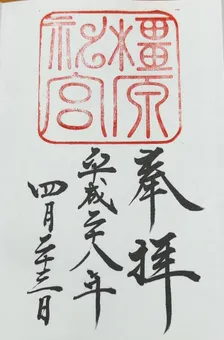 橿原神宮
奉拝
平成二十八年
四月二十三日